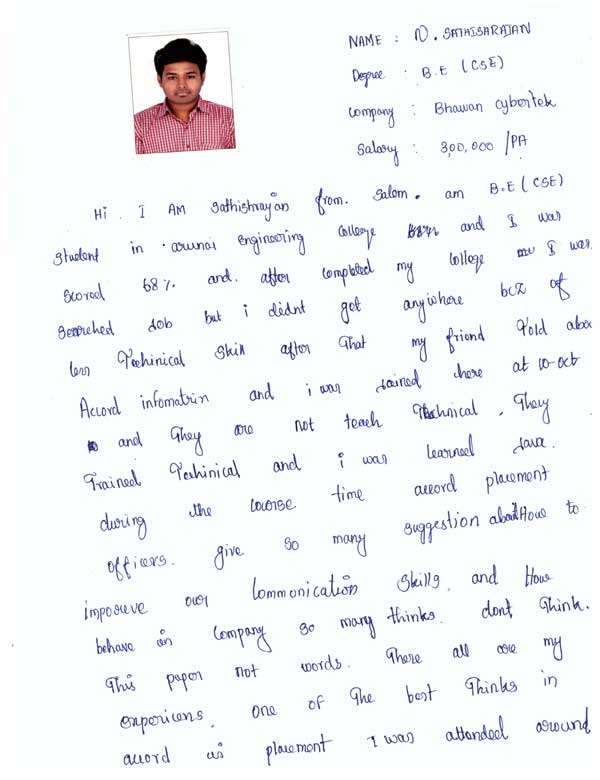 NAME : N. SATHISARAJAN
Degree : B.E (CSE)
Company : Bhawan cybertek
Salary : 3,00,000 /PA
Hi . I AM Sathishrayan from. Salem. am B.E (CSE)
student in arunai engineering college and I was
scored 68% and. after completed my college I was.
serached Job but i didnt got anywhere bcz of
less Techinical skill after that my friend told abou
Accord infomation and i was Jained there at 10-oct
and They are not teach Technical. They
Trained Techinical and i was learned Java.
during the course time accord placement
officers. give so many suggestion about How to
imporeve our Communication skills. and How
behave in Company so many thinks. dont Think.
This paper not words. There all are my
expericens. one of The best Thinks in
accord is placement I was attended around